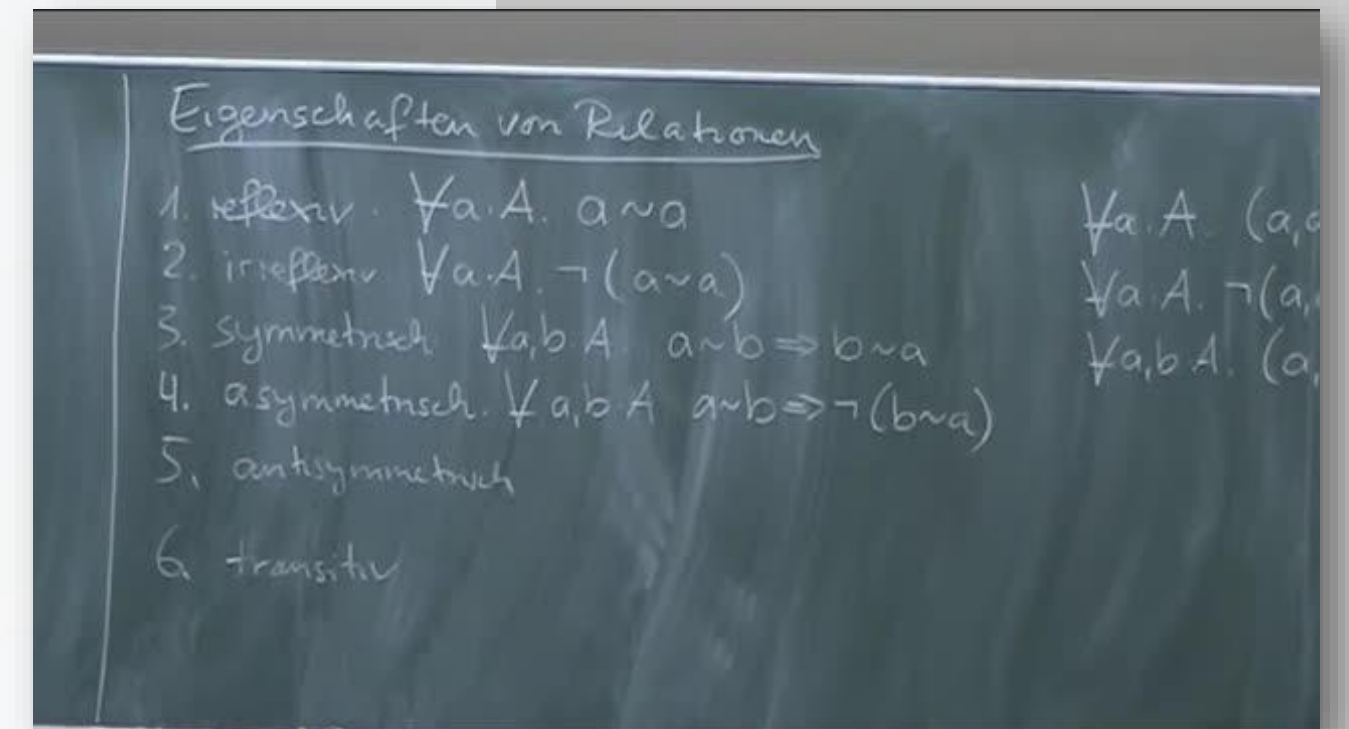 Eigenschaften von Relationen
1. reflexiv. ∀a.A. a~a
2. irreflexiv ∀a.A. ¬(a~a)
3. symmetrisch. ∀a,b.A. a~b ⇒ b~a
4. asymmetrisch. ∀a,b.A a~b ⇒ ¬(b~a)
5. antisymmetrisch
6. transitiv
∀a.A. (a,
∀a.A. ¬(a,
∀a,b.A. (a,